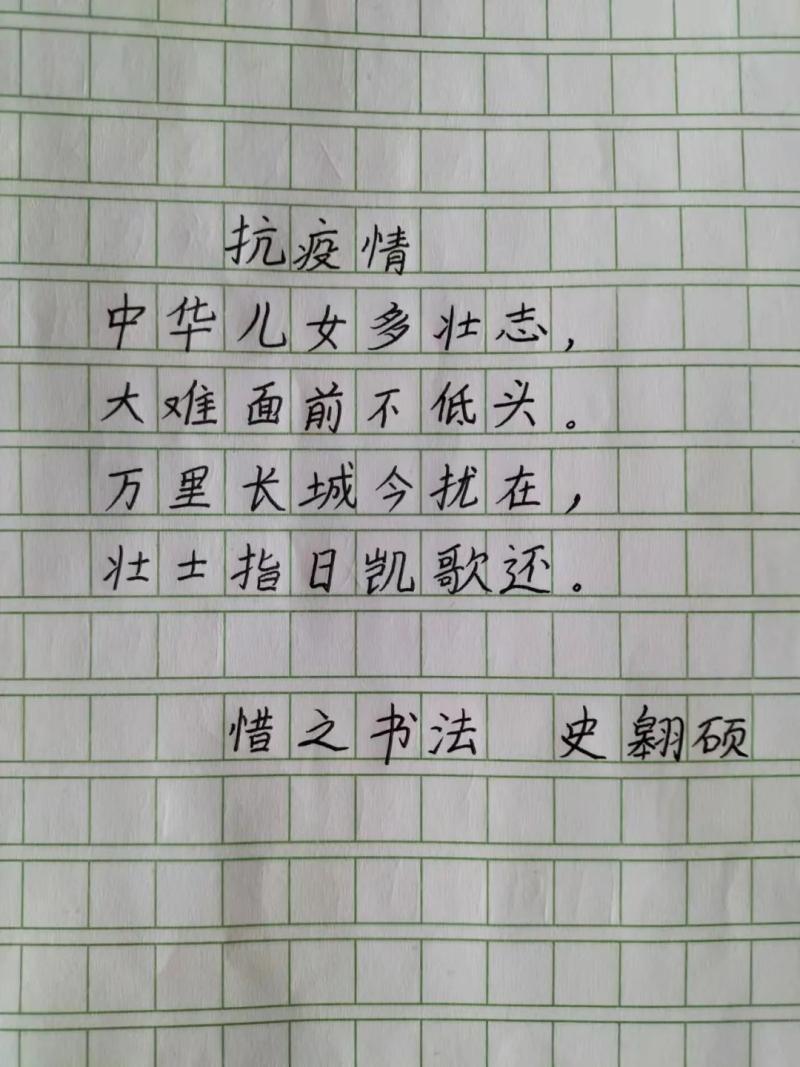 抗疫情
中华儿女多壮志，
大难面前不低头。
万里长城今扰在，
壮士指日凯歌还。
惜之书法 史翱硕